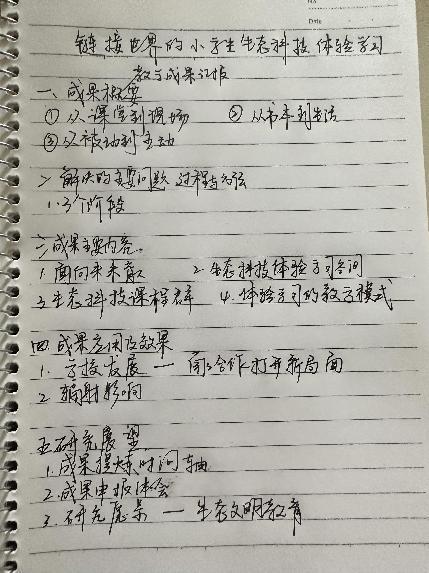 No
Date
链接世界的小学生生态科技体验学习
教学成果汇报
一、成果概要
①从课堂到现场 ②从书本到生活
③从被动到主动
二、解决的主要问题 过程与方法
1. 3个阶段
三、成果主要内容
1. 面向未来 2. 生态科技体验学习
3. 生态科技课程群 4. 体验学习的教学模式
四、成果应用及效果
1. 学校发展 — 合作打开新局面
2. 辐射影响
五、研究展望
1. 成果提炼时间轴
2. 成果申报体会
3. 研究愿景 — 生态文明教育